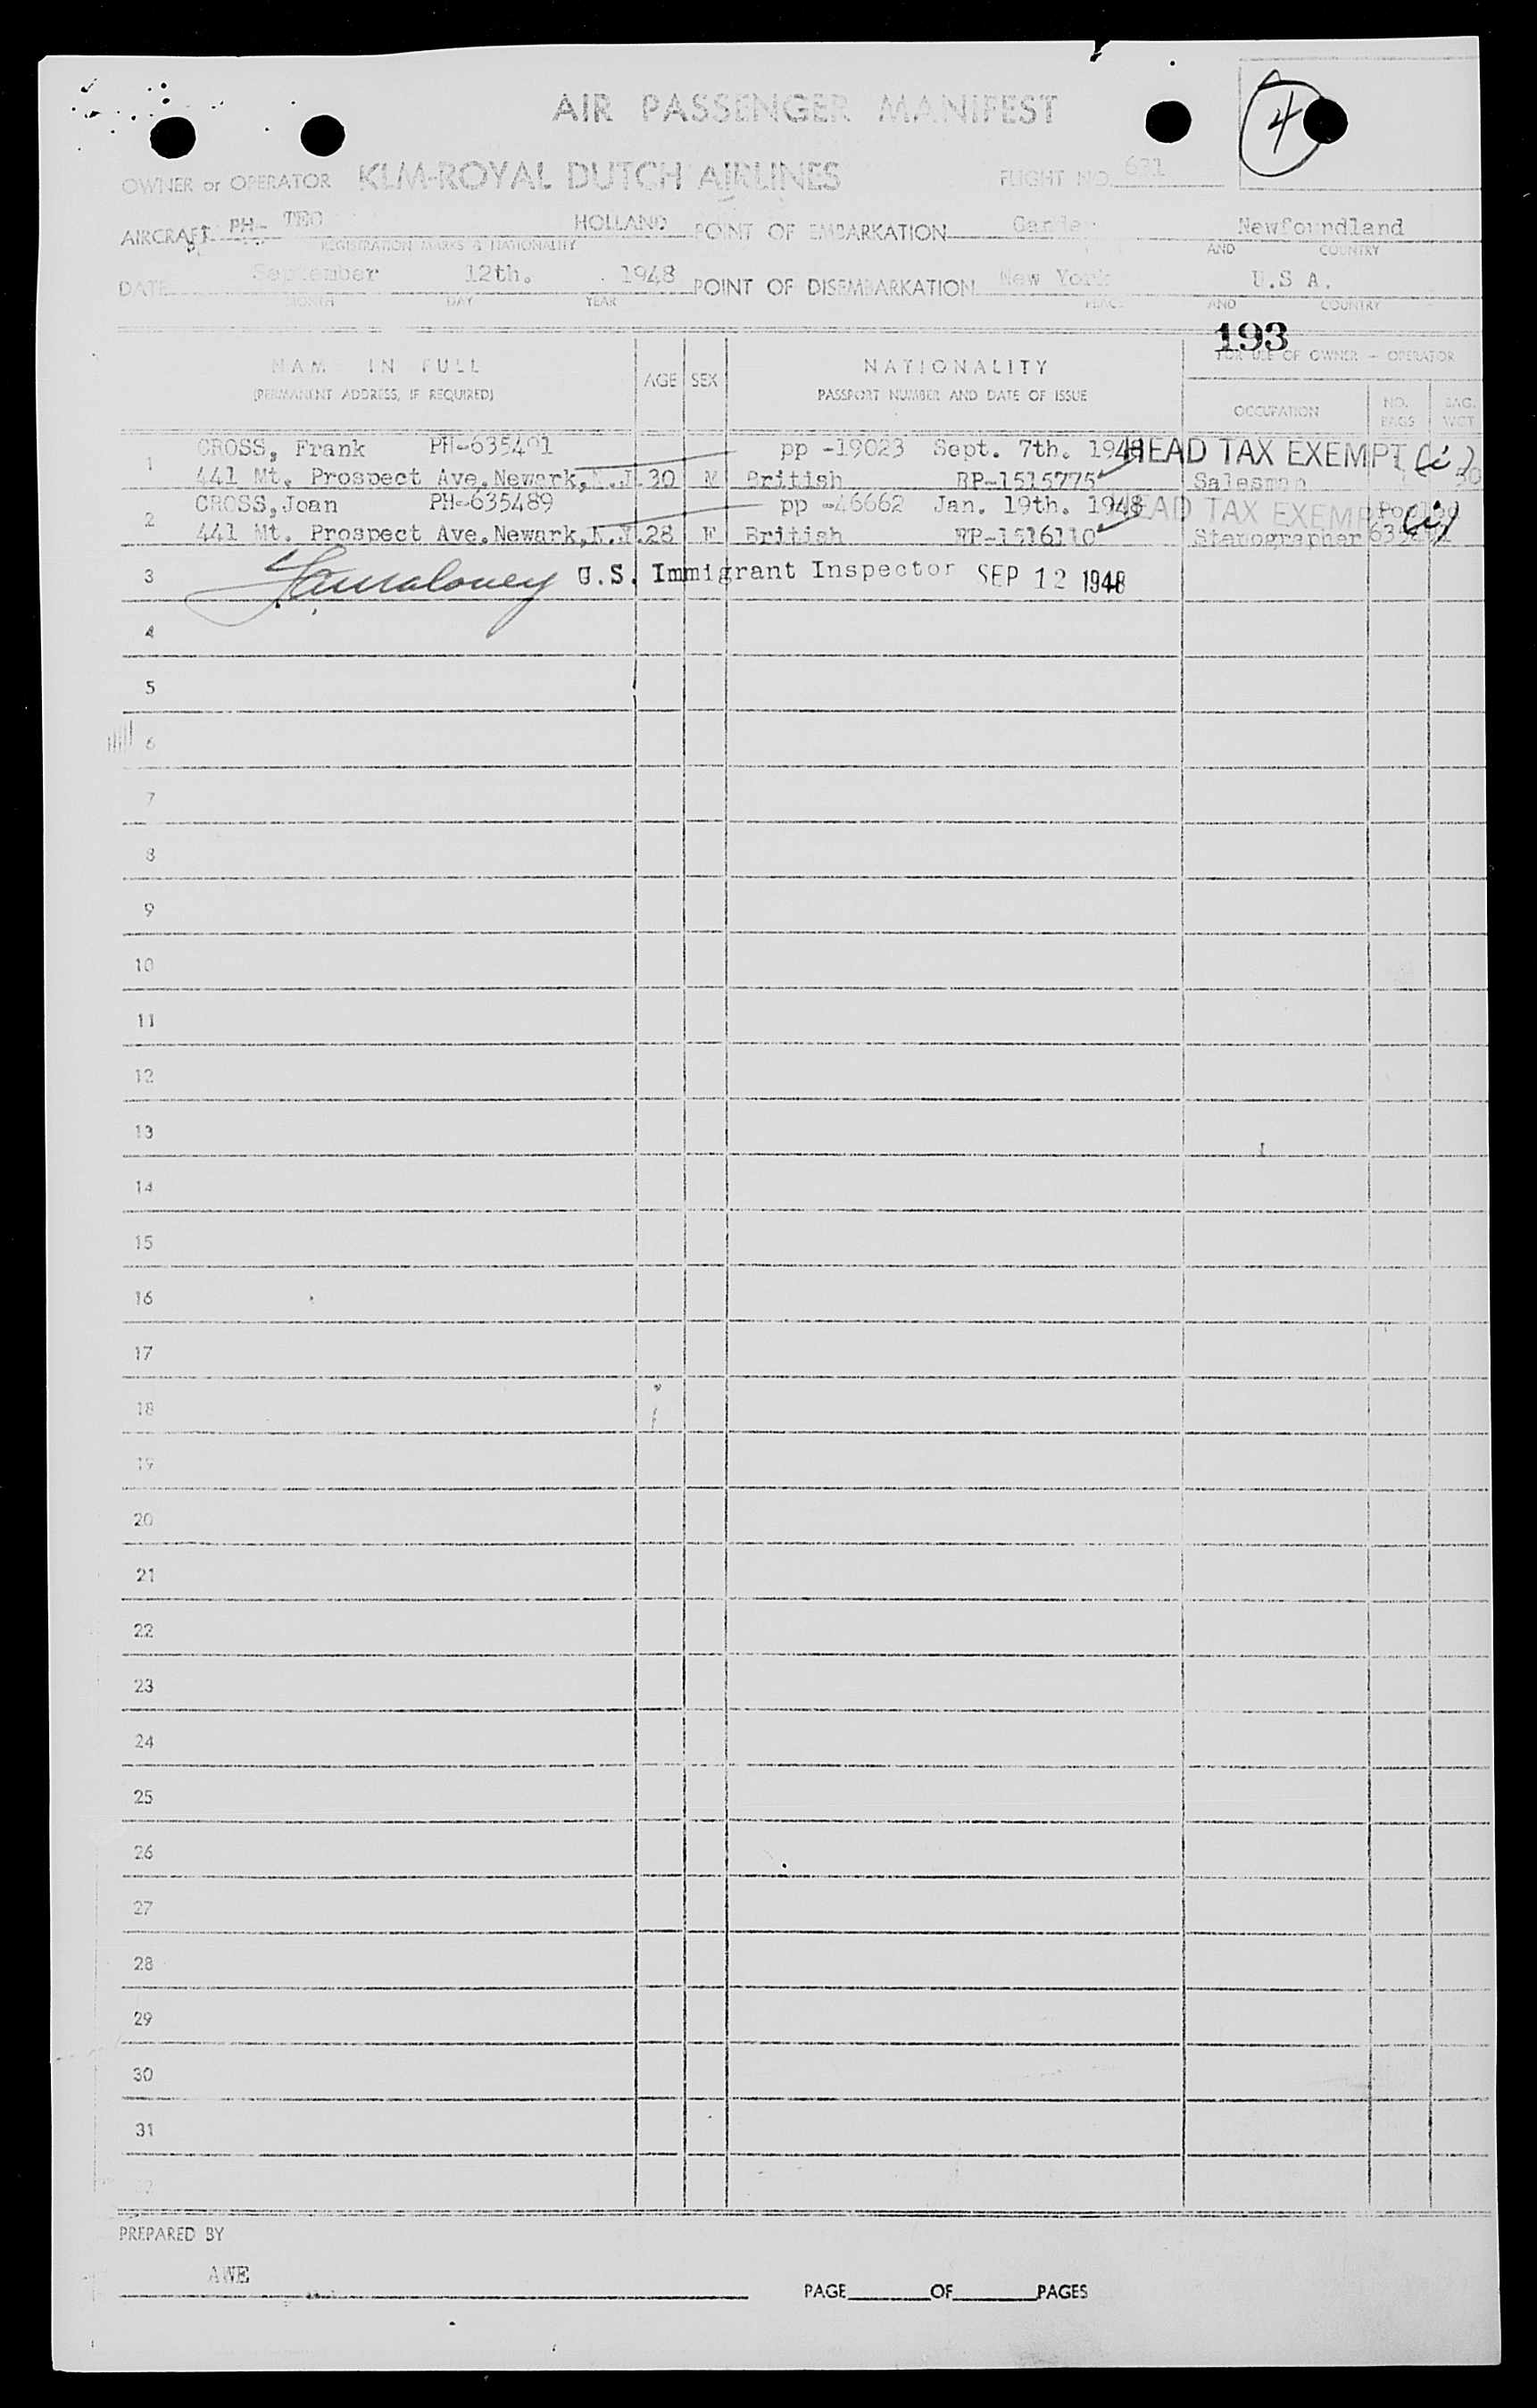 4
AIR PASSENGER MANIFEST
OWNER or OPERATOR KLM-ROYAL DUTCH AIRLINES FLIGHT NO. 621
AIRCRAFT PH- HOLLAND POINT OF EMBARKATION Gander Newfoundland
REGISTRATION MARKS & NATIONALITY AND COUNTRY
DATE September 12th. 1948 POINT OF DISEMBARKATION New York U.S A.
MONTH DAY YEAR PLACE AND COUNTRY
193
NAME IN FULL
(PERMANENT ADDRESS, IF REQUIRED)
AGE SEX
NATIONALITY
PASSPORT NUMBER AND DATE OF ISSUE
FOR USE OF OWNER - OPERATOR
OCCUPATION
NO. BAGS
BAG. WGT
1 CROSS, Frank PH-635491 pp -19023 Sept. 7th. 1948 HEAD TAX EXEMPT (i)
441 Mt. Prospect Ave. Newark, N.J. 30 M British RP-1515775 Salesman 30
2 CROSS, Joan PH-635489 pp -46662 Jan. 19th. 1948 HEAD TAX EXEMPT (i)
441 Mt. Prospect Ave. Newark, N.J. 28 F British RP-1516110 Stenographer
3 U.S. Immigrant Inspector SEP 12 1948
4
5
6
7
8
9
10
11
12
13
14
15
16
17
18
19
20
21
22
23
24
25
26
27
28
29
30
31
32
PREPARED BY
AWE
PAGE OF PAGES